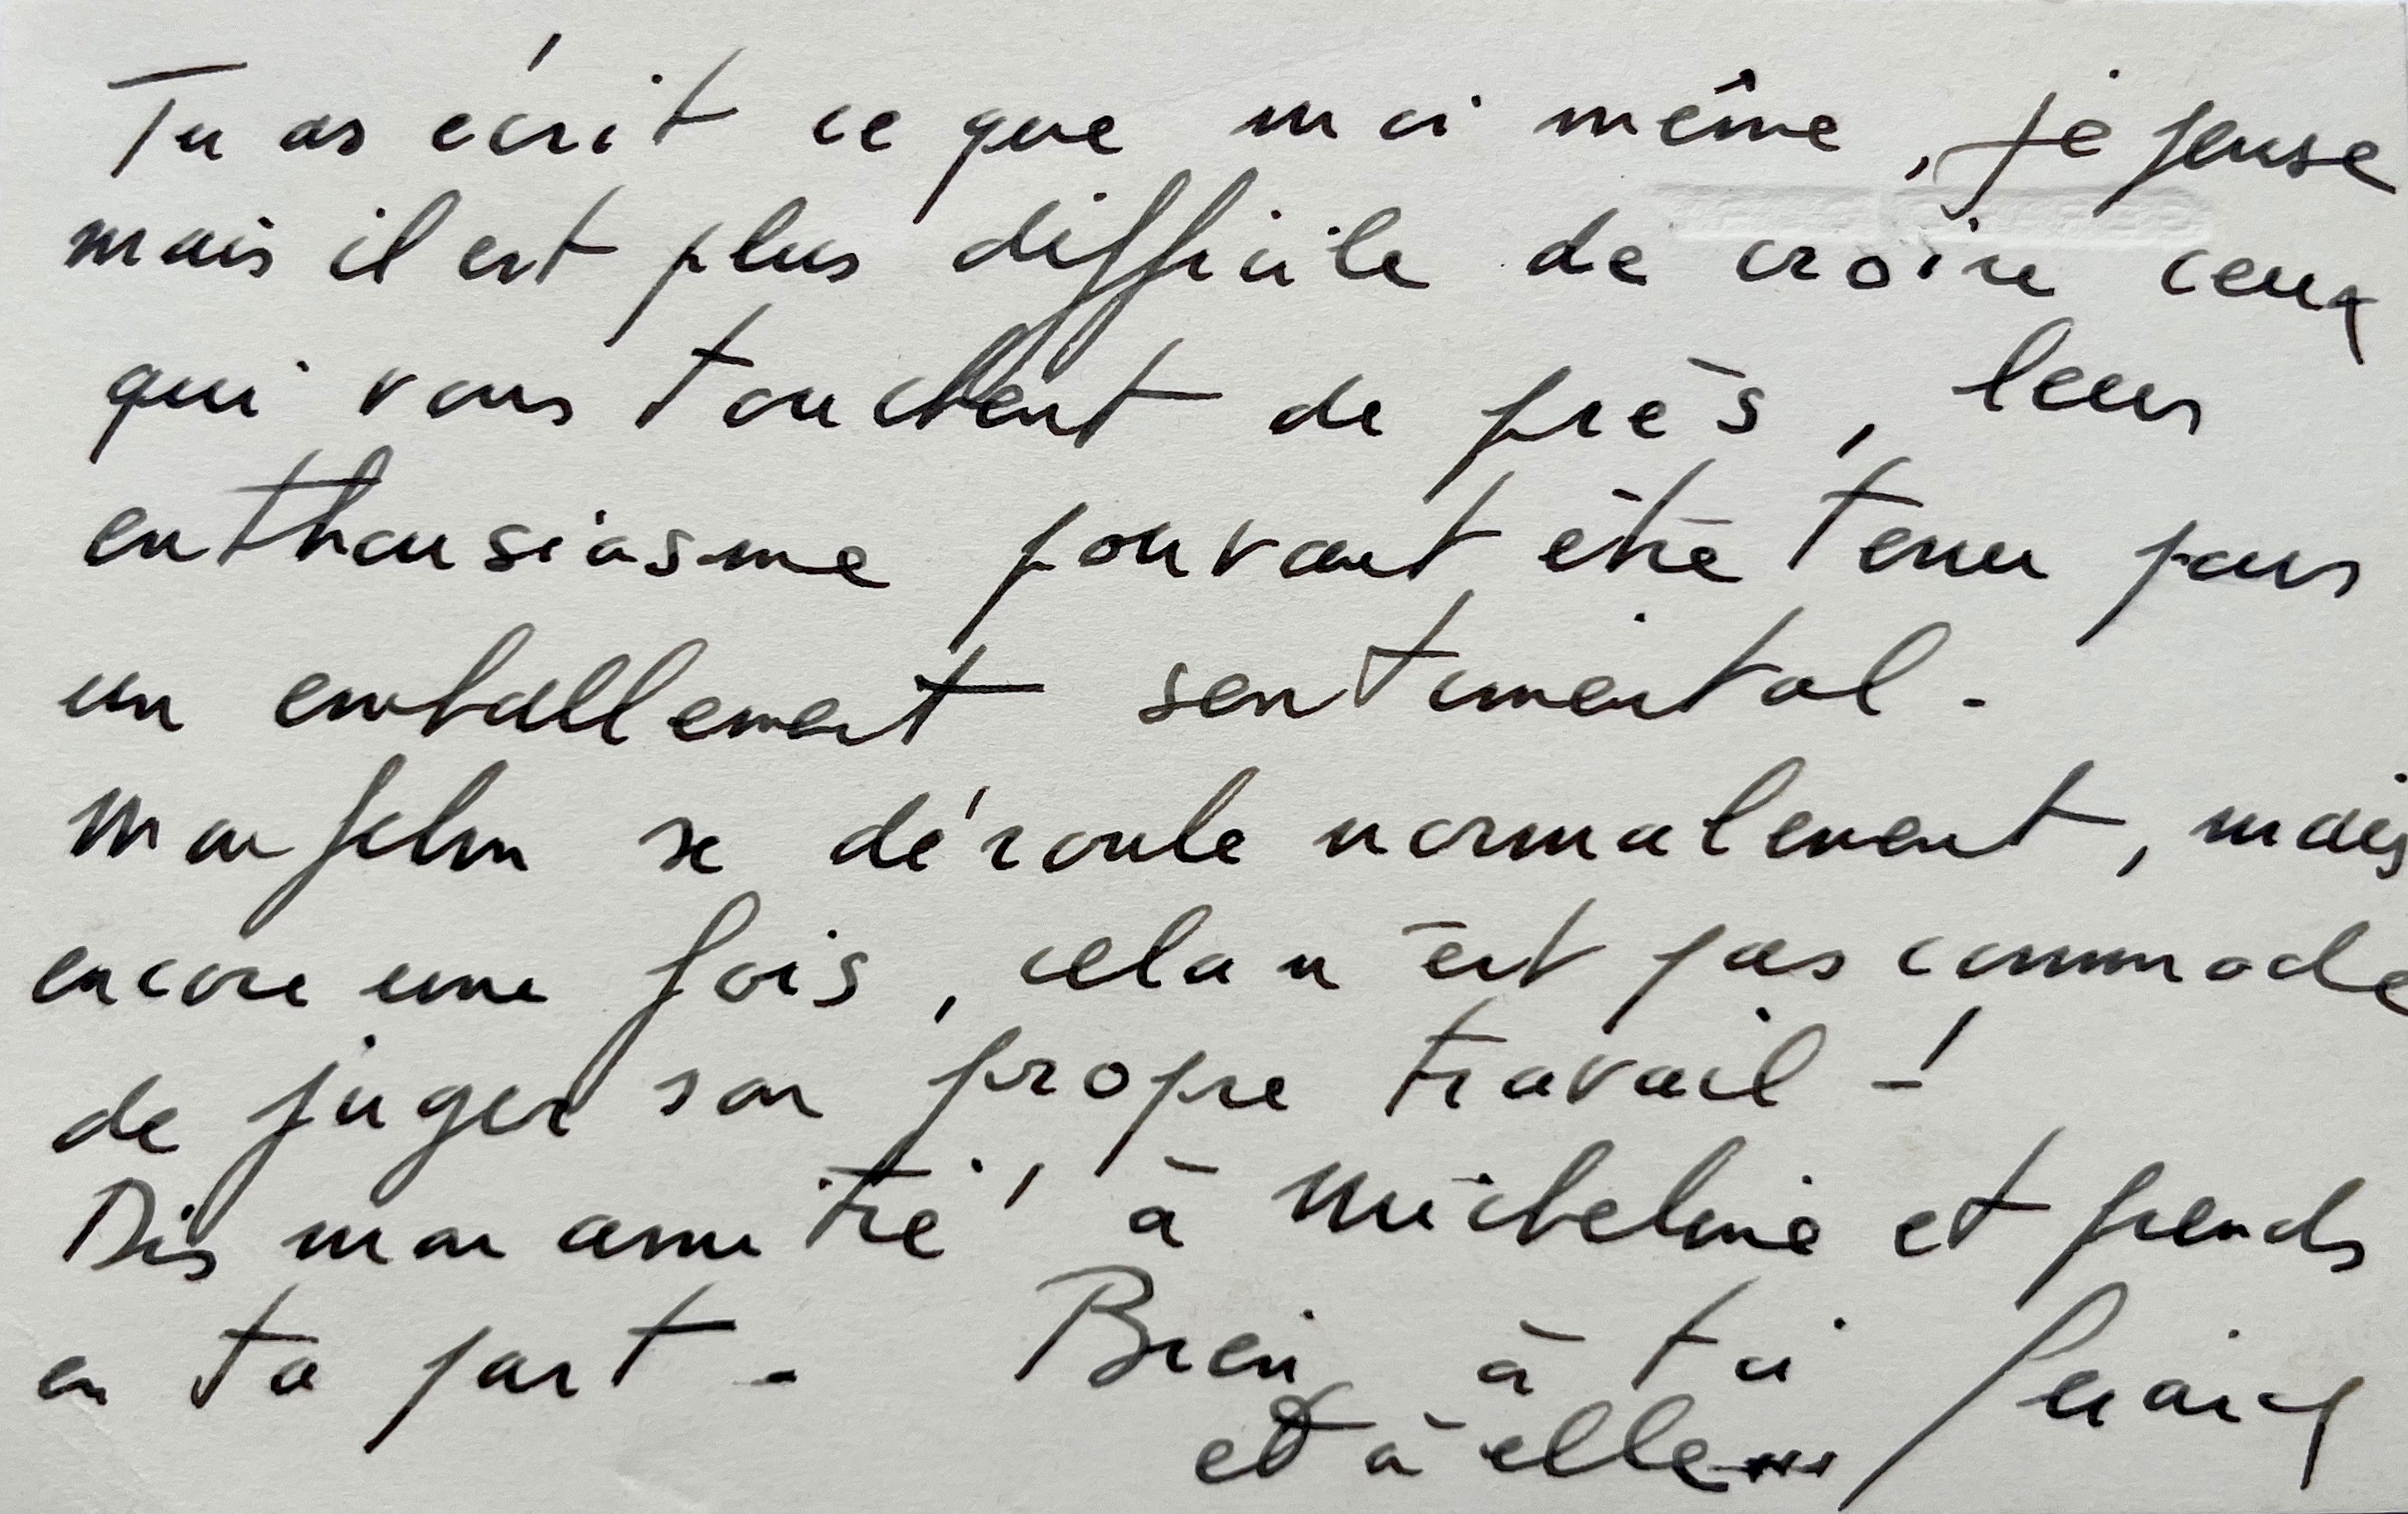 Tu as écrit ce que moi même, je pense
mais il est plus difficile de croire ceux
qui vous touchent de près, leur
enthousiasme pouvant être tenu pour
un emballement sentimental.
Mon film se déroule normalement, mais
encore une fois, cela n'est pas commode
de juger son propre travail -!
Dis mon amitié à Micheline et prends
en ta part - Bien à toi
et à elle